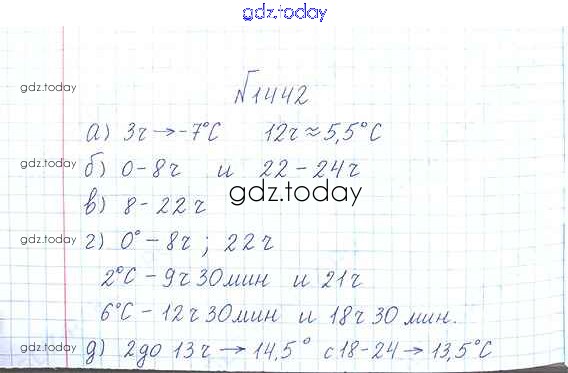 gdz.today
gdz.today
№1442
а) 3ч → -7°С 12ч ≈ 5,5°С
gdz.today
б) 0 - 8ч и 22 - 24ч
gdz.today
в) 8 - 22ч
gdz.today
г) 0° - 8ч ; 22ч
2°С - 9ч 30мин и 21ч
6°С - 12ч 30мин и 18ч 30 мин.
gdz.today
д) 2до 13ч → 14,5° с18-24 → 13,5°С